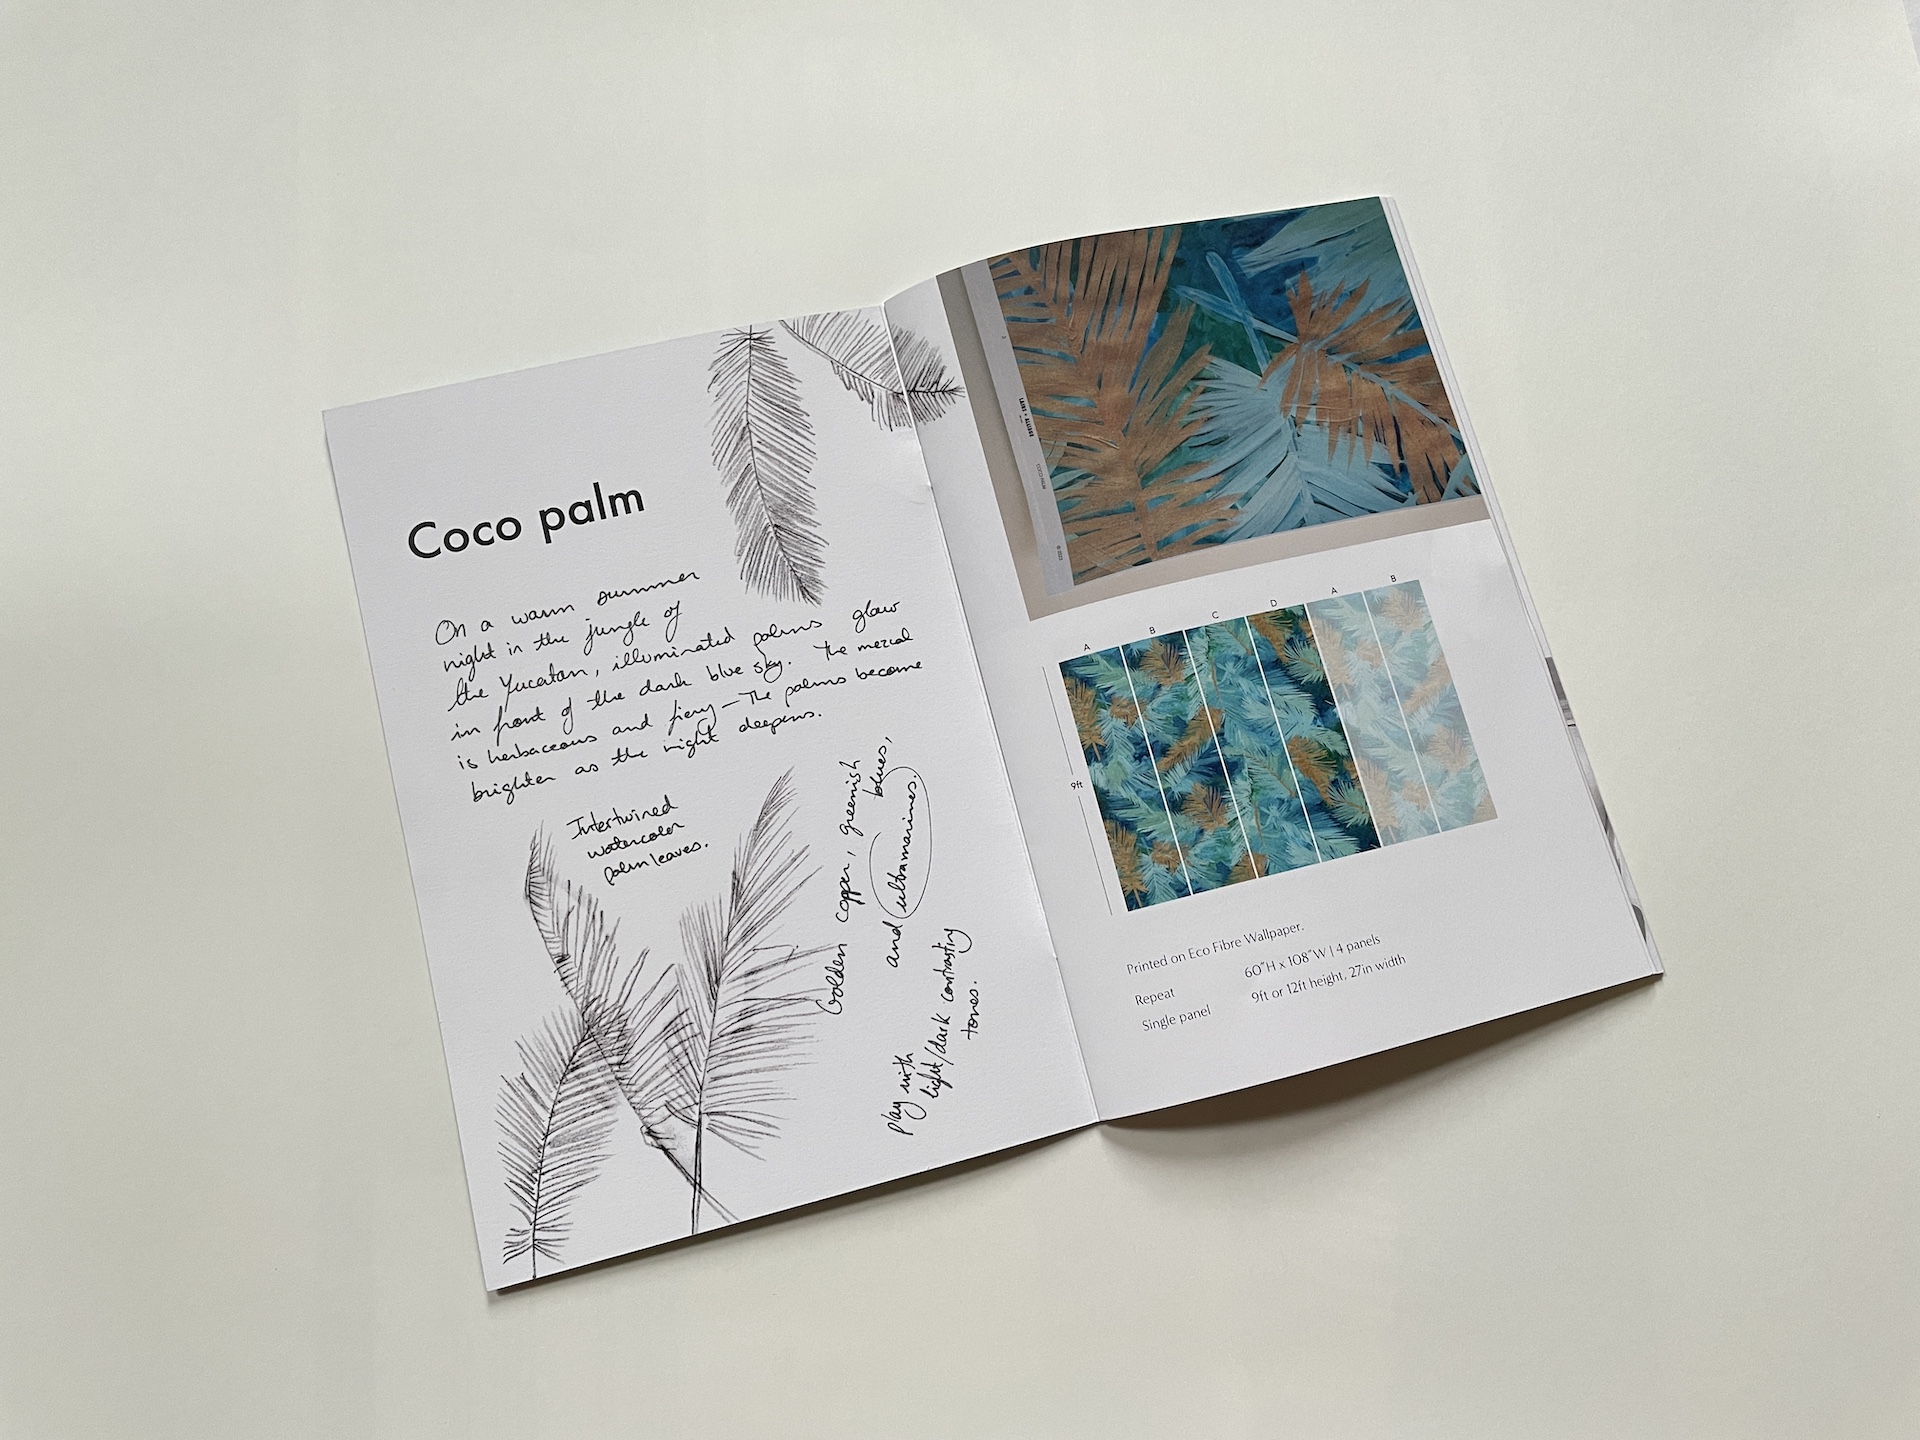 Coco palm
On a warm summer
night in the jungle of
the Yucatan, illuminated palms glow
in front of the dark blue sky. The mezcal
is herbaceous and fiery — The palms become
brighter as the night deepens.
Intertwined
watercolor
palm leaves.
Golden copper, greenish blues,
and ultramarines.
Play with
light/dark contrasting
tones.
A B C D A B
9ft
Printed on Eco Fibre Wallpaper.
Repeat 60"H x 108"W | 4 panels
Single panel 9ft or 12ft height, 27in width